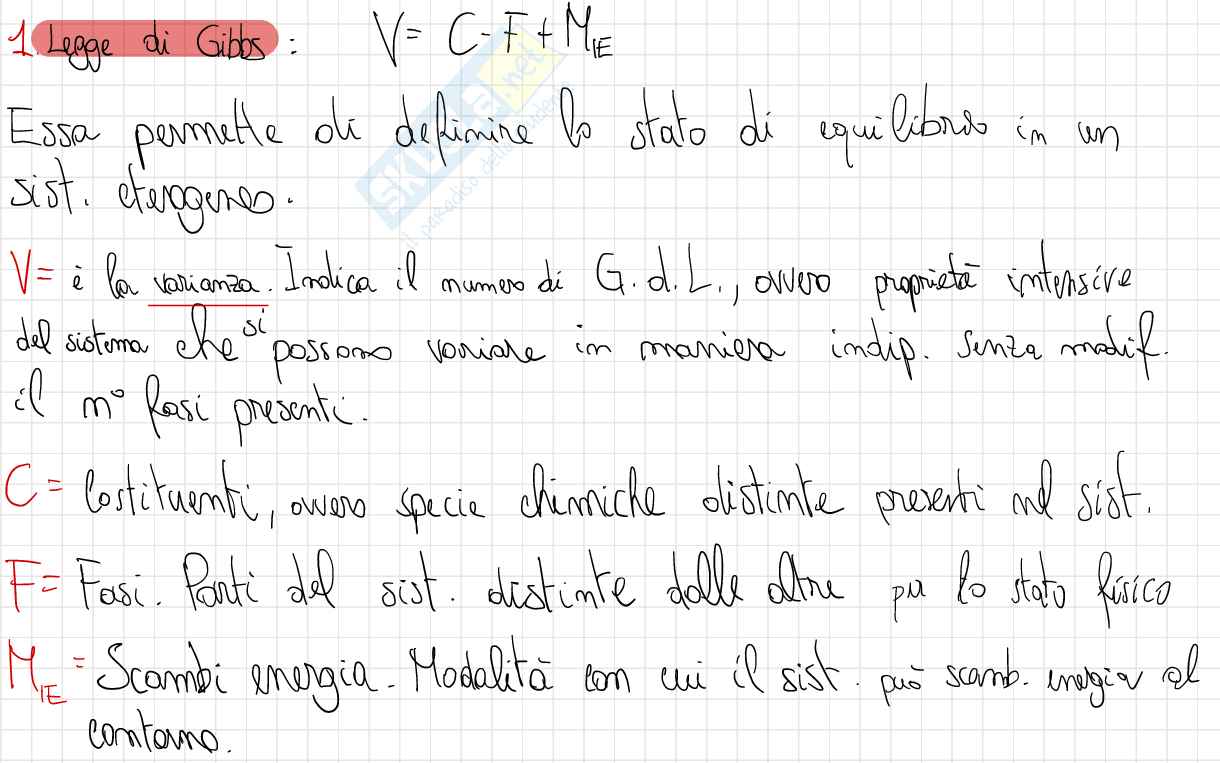 1. Legge di Gibbs : V = C - F + M_IE
Essa permette di definire lo stato di equilibrio in un
sist. eterogeneo.
V = è la varianza. Indica il numero di G.d.L., ovvero proprietà intensive
del sistema che si possono variare in maniera indip. senza modif.
il n° fasi presenti.
C = Costituenti, ovvero specie chimiche distinte presenti nel sist.
F = Fasi. Parti del sist. distinte dalle altre per lo stato fisico
M_IE = Scambi energia. Modalità con cui il sist. può scamb. energia al
contorno.
SKUOLA.net
il paradiso dello studente